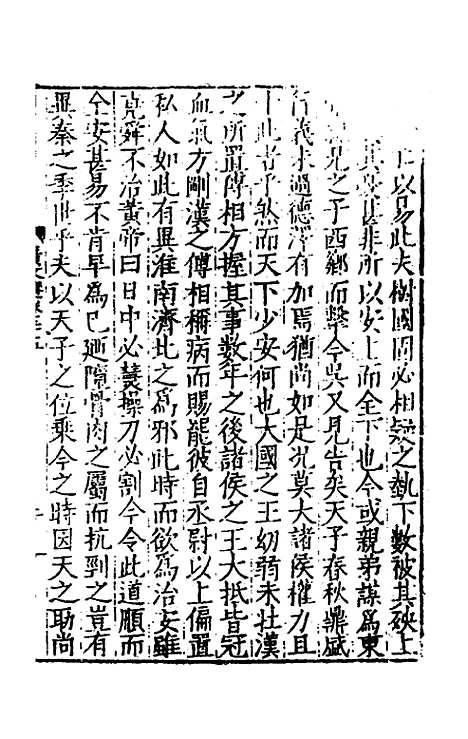 以易此夫樹國固必相疑之埶下數被其殃上
其憂甚非所以安上而全下也今或親弟謀為東
兄之子西鄉而擊今吳又見告矣天子春秋鼎盛
行義未過德澤有加焉猶尚如是況莫大諸侯權力且
十此者乎然而天下少安何也大國之王幼弱未壯漢
之所置傅相方握其事數年之後諸侯之王大抵皆冠
血氣方剛漢之傅相稱病而賜罷彼自丞尉以上偏置
私人如此有異淮南濟北之為邪此時而欲為治安雖
堯舜不治黃帝曰日中必熭操刀必割今令此道順而
全安甚易不肯早為已迺墮骨肉之屬而抗剄之豈有
異秦之季世乎夫以天子之位乘今之時因天之助尚